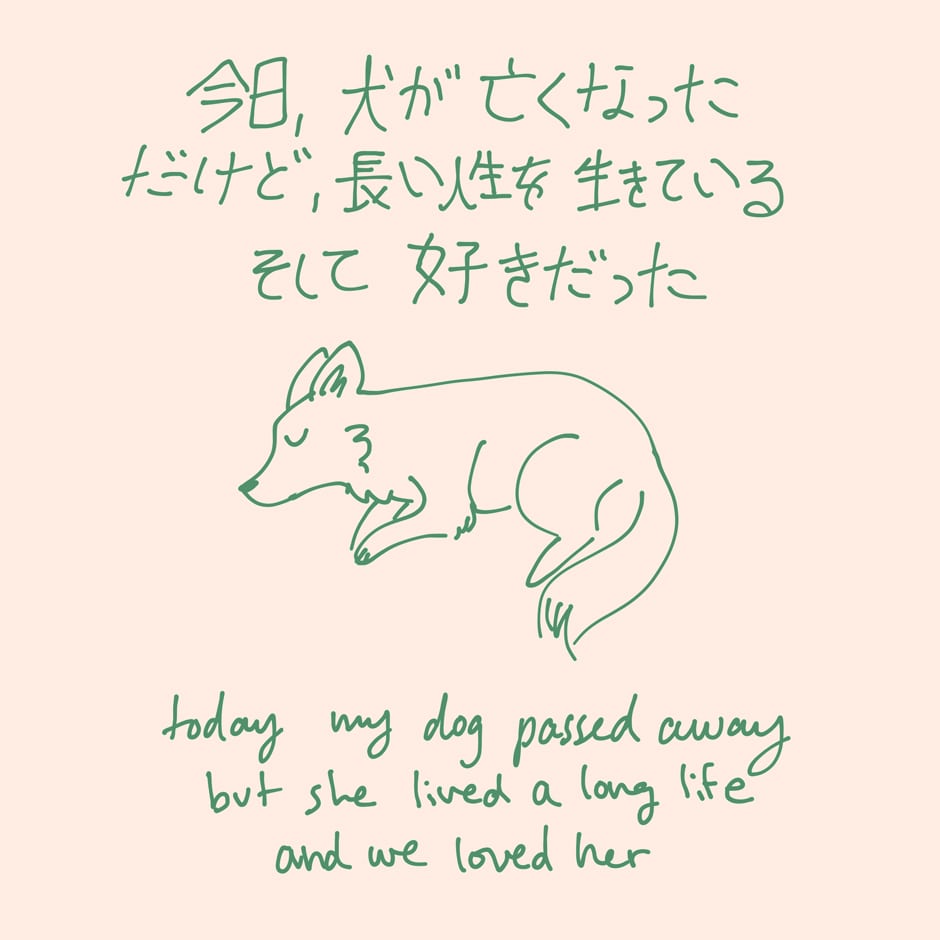 今日, 犬が亡くなった
だけど, 長い人性を生きている
そして 好きだった
today my dog passed away
but she lived a long life
and we loved her